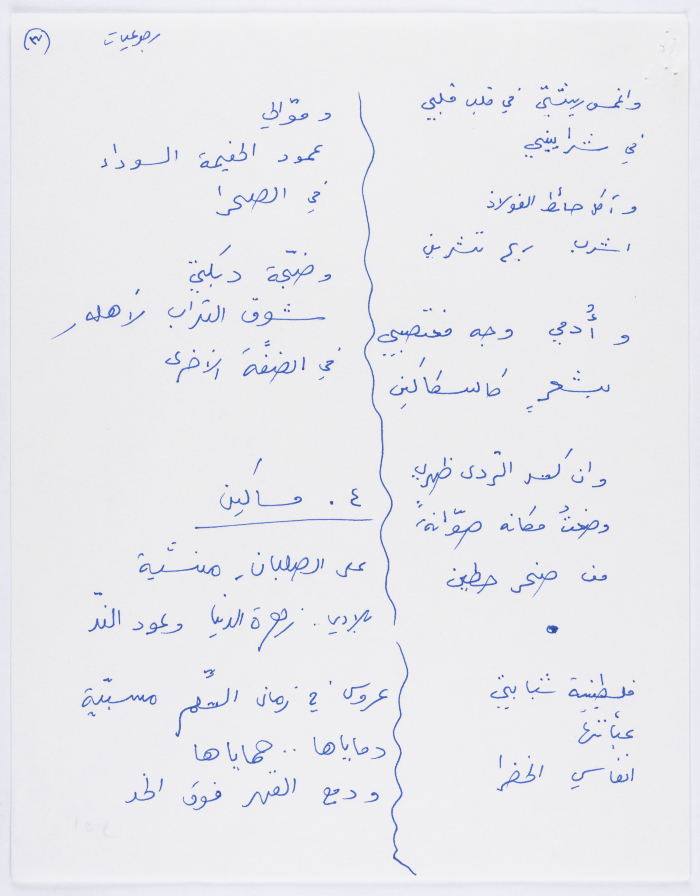 رجوعيات
٣٧
واغمس ريشتي في قلب قلبي
في شراييني
وآكل حائط الفولاذ
اشرب ريح تشرين
و أُدمي وجه مغتصبي
بشعرٍ كالسكاكين
وان كسر الردى ظهري
وضعتُ مكانه صوّانةً
من صخر حطين
فلسطينية شبابتي
عبأتها
انفاسي الخضرا
وموّالي
عمود الخيمة السوداء
في الصحرا
وضجّة دبكتي
شوق التراب لأهله
في الضفّة الاخرى
٤ . مساكين
على الصلبان منسيّة
بلادي .. زهرة الدنيا وعود الندّ
عروس في زمان السّلم مسبيّة
دماياها .. حماياها
ودمع القهر فوق الخد